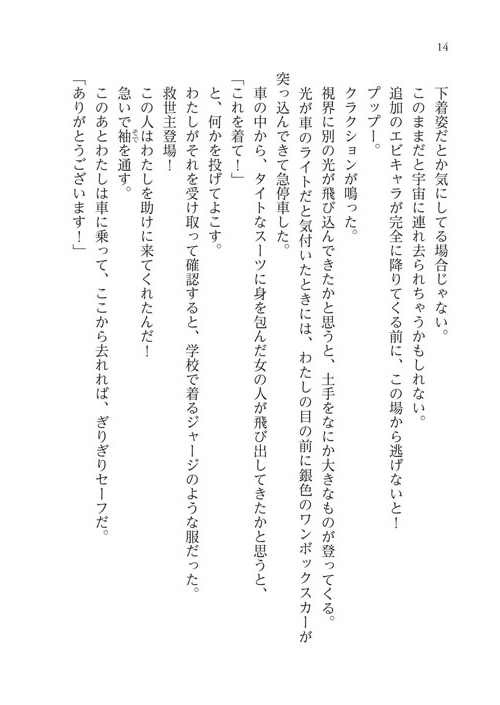 14
下着姿だとか気にしてる場合じゃない。
このままだと宇宙に連れ去られちゃうかもしれない。
追加のエビキャラが完全に降りてくる前に、この場から逃げないと！
プップー。
クラクションが鳴った。
視界に別の光が飛び込んできたかと思うと、土手をなにか大きなものが登ってくる。
光が車のライトだと気付いたときには、わたしの目の前に銀色のワンボックスカーが
突っ込んできて急停車した。
車の中から、タイトなスーツに身を包んだ女の人が飛び出してきたかと思うと、
「これを着て！」
と、何かを投げてよこす。
わたしがそれを受け取って確認すると、学校で着るジャージのような服だった。
救世主登場！
この人はわたしを助けに来てくれたんだ！
急いで袖を通す。
このあとわたしは車に乗って、ここから去れれば、ぎりぎりセーフだ。
「ありがとうございます！」